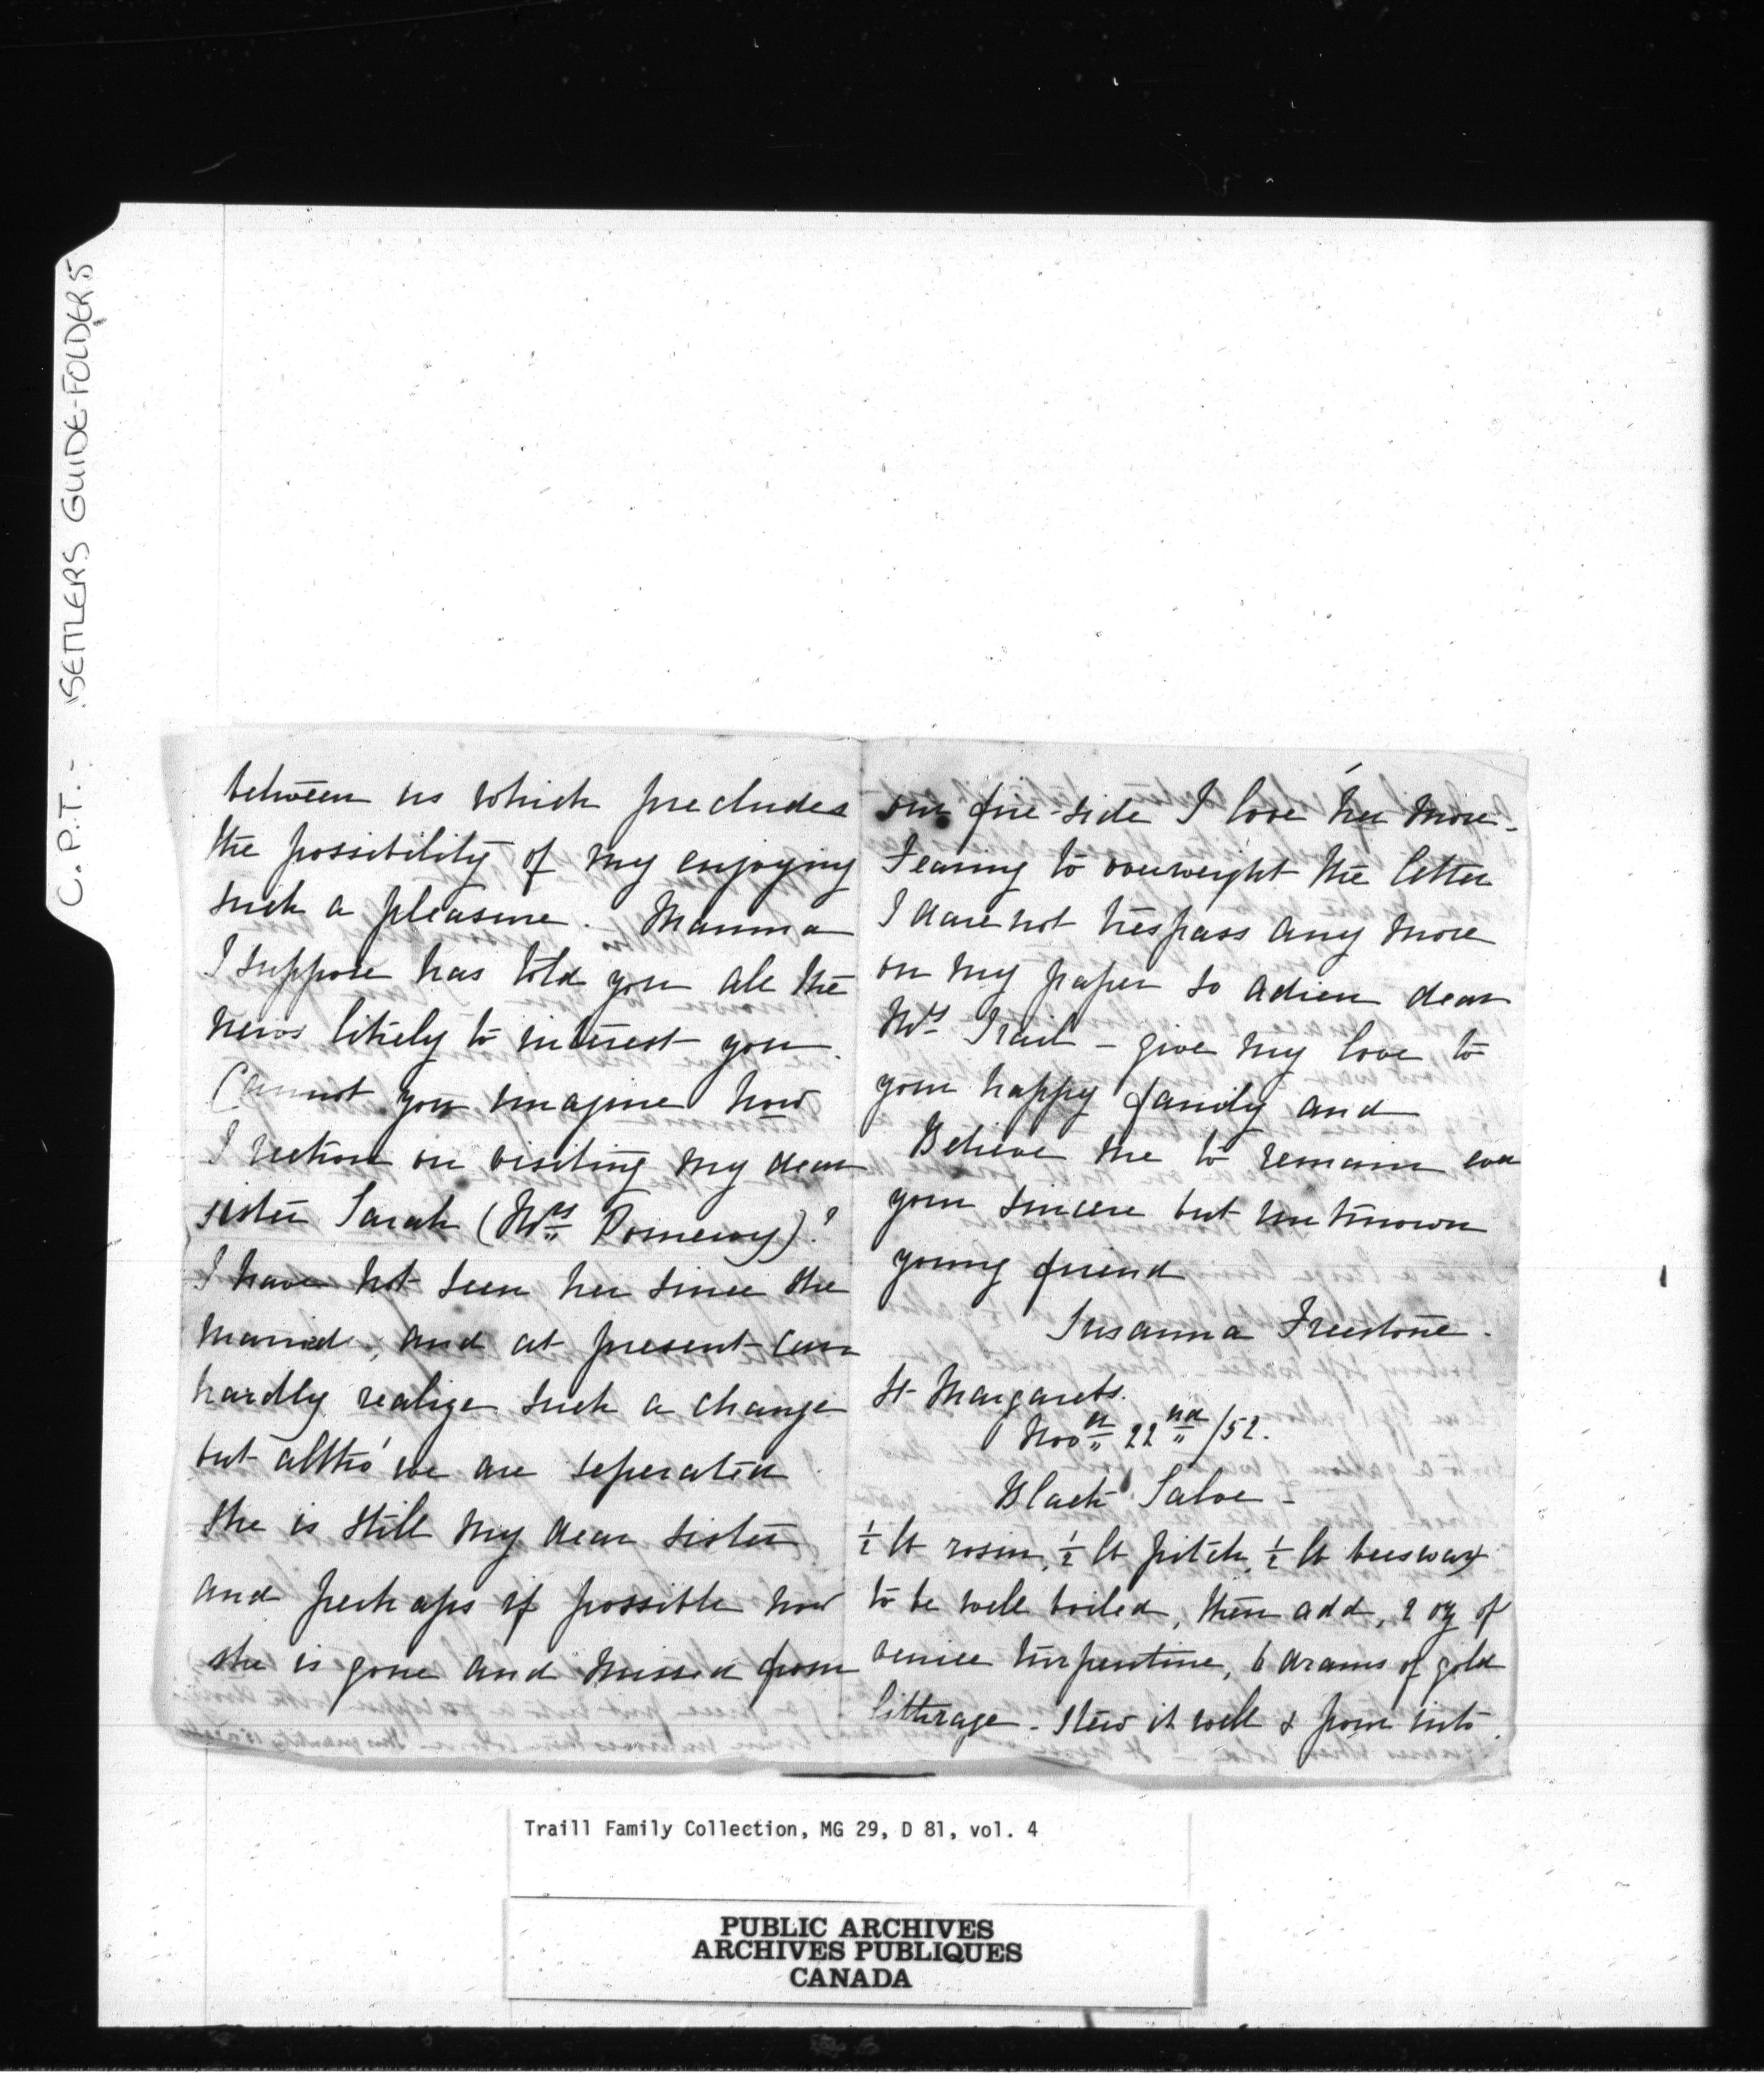 C.P.T. - "SETTLERS GUIDE-FOLDER 5
between us which precludes
the possibility of my enjoying
such a pleasure. Mamma
I suppose has told you all the
news likely to interest you.
Cannot you imagine how
I reckon on visiting my dear
sister Sarah (Mrs Pomeroy)?
I have not seen her since she
married, and at present can
hardly realize such a change
but altho' we are seperated
she is still my dear sister
and perhaps if possible now
she is gone and missed from
our fire-side I love her more.
Fearing to overweight the letter
I dare not trespass any more
on my paper so adieu dear
Mrs Trail - give my love to
your happy family and
Believe me to remain ever
your sincere but unknown
young friend
Susanna Freestone.
St Margarets.
Novr 22nd /52.
Black Salve -
½ lb rosin, ½ lb pitch, ½ lb beeswax
to be well boiled, then add, 2 oz of
venice turpentine, 6 drams of gold
litherage - Stew it well & pour into
Traill Family Collection, MG 29, D 81, vol. 4
PUBLIC ARCHIVES
ARCHIVES PUBLIQUES
CANADA